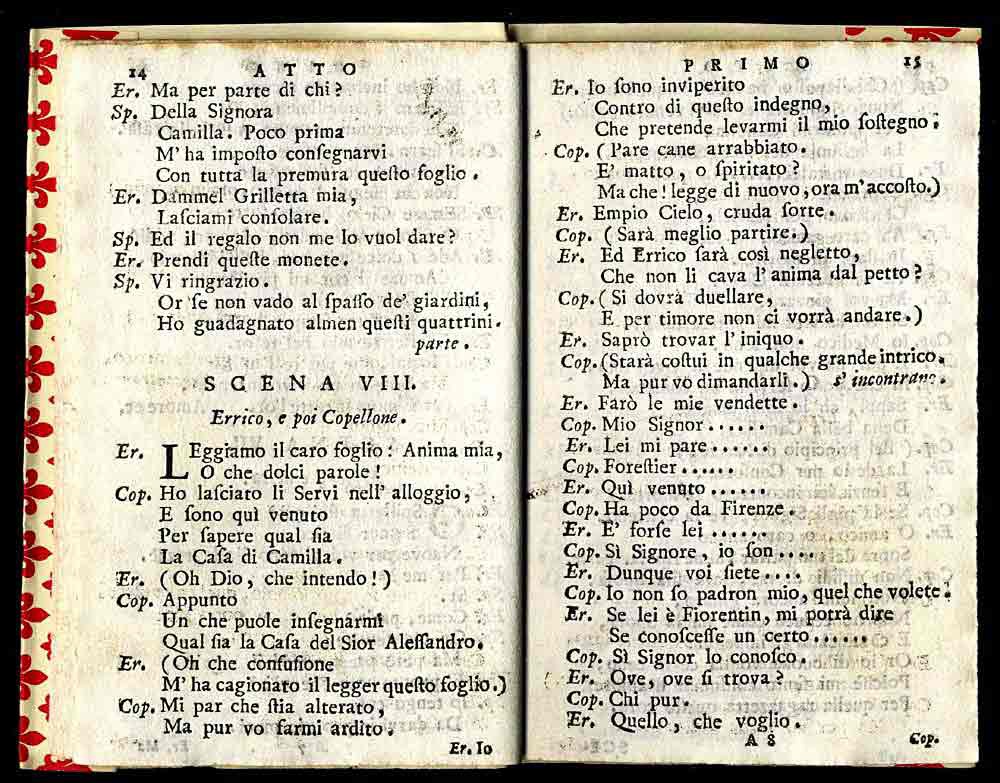 14 ATTO
Er. Ma per parte di chi?
Sp. Della Signora
Camilla. Poco prima
M'ha impoſto conſegnarvi
Con tutta la premura queſto foglio.
Er. Dammel Grilletta mia,
Laſciami conſolare.
Sp. Ed il regalo non me lo vuol dare?
Er. Prendi queſte monete.
Sp. Vi ringrazio.
Or ſe non vado al ſpaſſo de' giardini,
Ho guadagnato almen queſti quattrini.
parte.
SCENA VIII.
Errico, e poi Copellone.
Er. LEggiamo il caro foglio: Anima mia,
O che dolci parole!
Cop. Ho laſciato li Servi nell' alloggio,
E ſono quì venuto
Per ſapere qual ſia
La Caſa di Camilla.
Er. (Oh Dio, che intendo!)
Cop. Appunto
Un che puole inſegnarmi
Qual ſia la Caſa del Sior Aleſſandro.
Er. (Oh che confuſione
M'ha cagionato il legger queſto foglio.)
Cop. Mi par che ſtia alterato,
Ma pur vo farmi ardito.
Er. Io
PRIMO 15
Er. Io ſono inviperito
Contro di queſto indegno,
Che pretende levarmi il mio ſoſtegno.
Cop. (Pare cane arrabbiato.
E' matto, o ſpiritato?
Ma che! legge di nuovo, ora m'accoſto.)
Er. Empio Cielo, cruda ſorte.
Cop. (Sarà meglio partire.)
Er. Ed Errico ſarà così negletto,
Che non li cava l'anima dal petto?
Cop. (Si dovrà duellare,
E per timore non ci vorrà andare.)
Er. Saprò trovar l'iniquo.
Cop. (Starà coſtui in qualche grande intrico.
Ma pur vo dimandarli.) s' incontrano.
Er. Farò le mie vendette.
Cop. Mio Signor......
Er. Lei mi pare......
Cop. Foreſtier......
Er. Quì venuto......
Cop. Ha poco da Firenze.
Er. E' forſe lei......
Cop. Sì Signore, io ſon....
Er. Dunque voi ſiete....
Cop. Io non ſo padron mio, quel che volete.
Er. Se lei è Fiorentin, mi potrà dire
Se conoſceſſe un certo......
Cop. Sì Signor lo conoſco.
Er. Ove, ove ſi trova?
Cop. Chi pur.
Er. Quello, che voglio.
A 8 Cop.